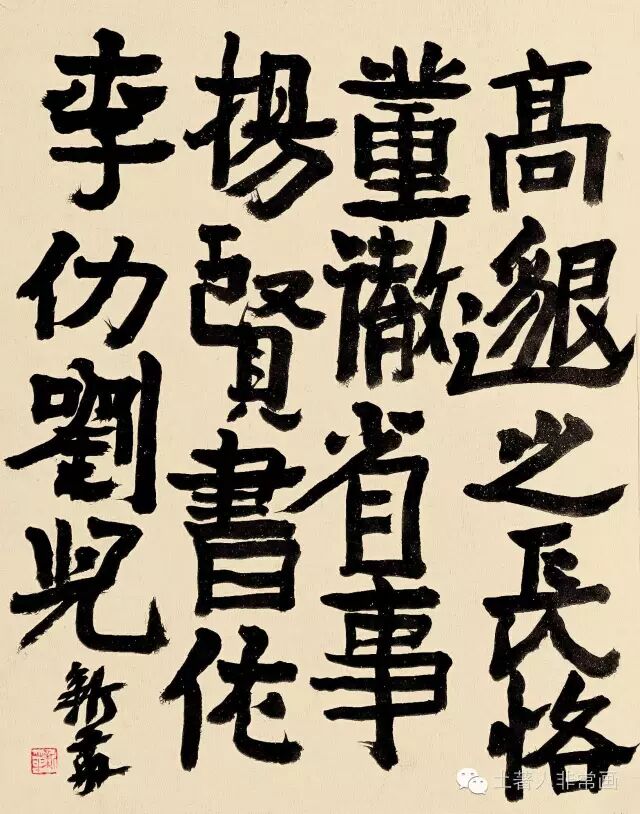 高邈之長恪
董徹省事
揚賢書佐
李仂劉兒
土著人非常画